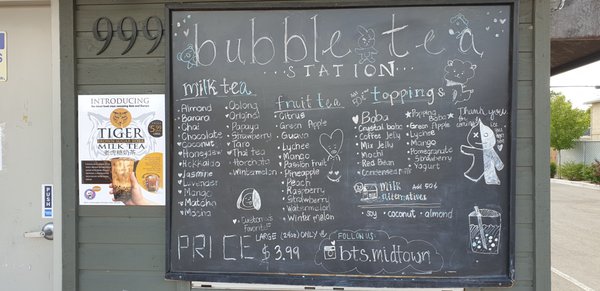 999
bubble tea
...STATION...
milk tea
Almond
Banana
Chai
Chocolate
Coconut
Honeydew
Hokkaido
Jasmine
Lavender
Mango
Matcha
Mocha
Oolong
Original
Papaya
Strawberry
Taro
Thai tea
Horchata
Wintermelon
Customers
favorite
fruit tea
Citrus
Green Apple
Guava
Lychee
Mango
Passion fruit
Pineapple
Peach
Raspberry
Strawberry
Watermelon
Winter melon
toppings
Boba
Crystal boba
Coffee Jelly
Mix Jelly
Mochi
Red Bean
Condensed milk
Popping Boba
Green Apple
Lychee
Mango
Pomegranate
Strawberry
Yogurt
Thank you
milk Add 50¢
alternatives
soy · coconut · almond
PRICE
LARGE (24oz) ONLY
$3.99
FOLLOW US:
bts.midtown
INTRODUCING
TIGER
MILK TEA
PUSH